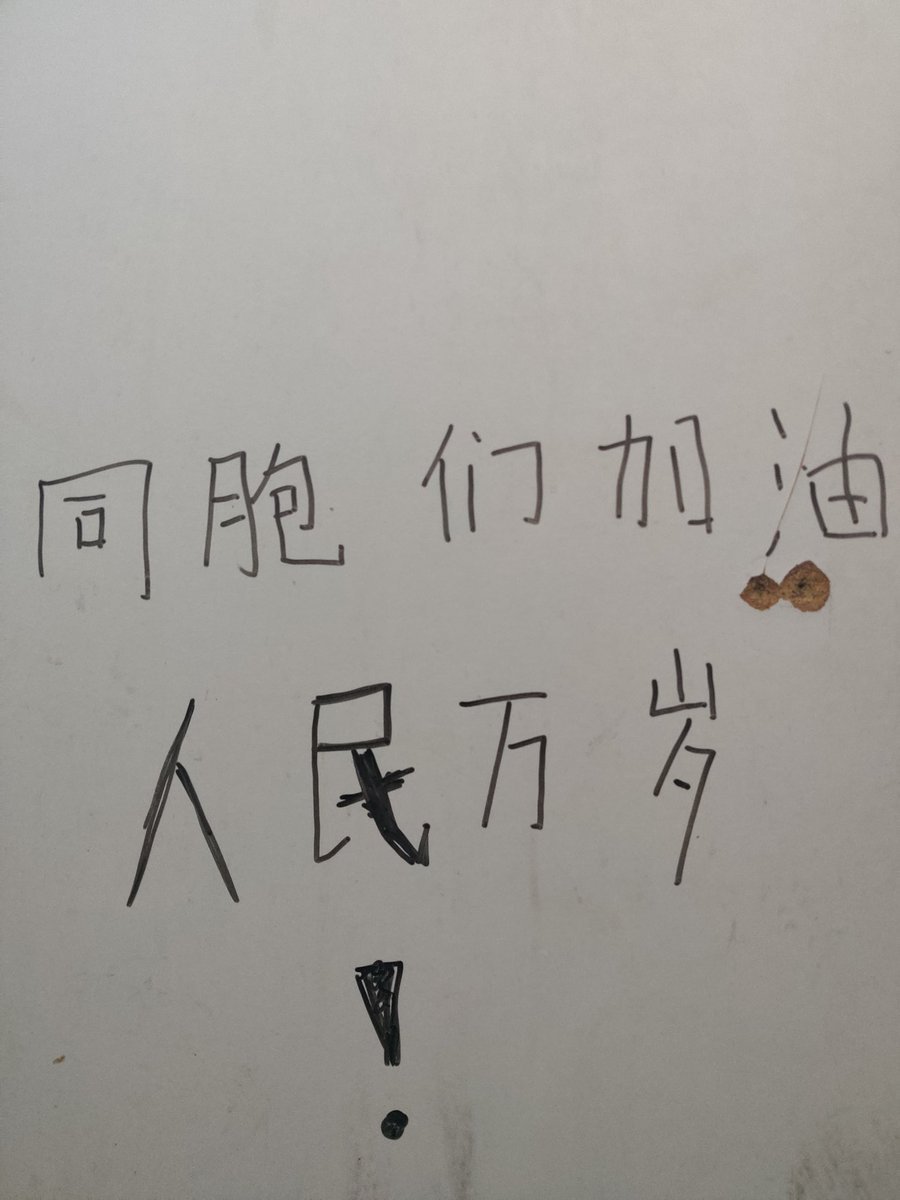 同胞们加油
人民万岁
!